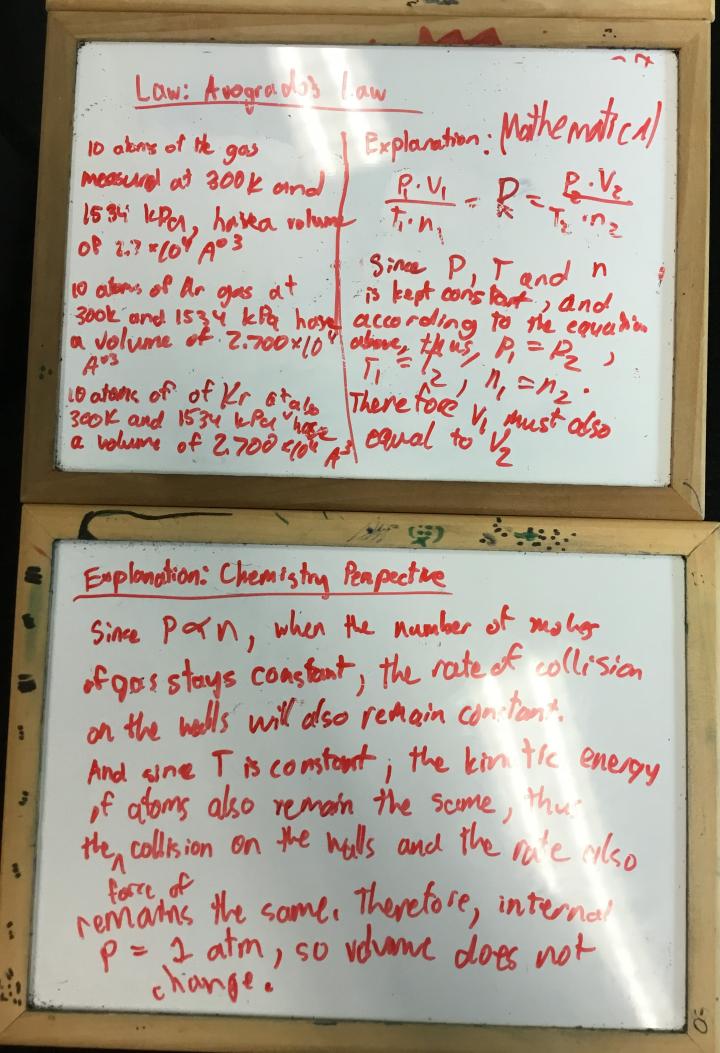 Law: Avogrado's Law
10 atoms of He gas
measured at 300K and
1534 kPa, have a volume
of 2.7 × 10⁴ A°³
10 atoms of Ar gas at
300K and 1534 kPa have
a volume of 2.700×10⁴
A°³
10 atoms of of Kr at also
300K and 1534 kPa have
a volume of 2.700 ×10⁴ A°³
Explanation: Mathematical
P₁·V₁ / T₁·n₁ = R = P₂·V₂ / T₂·n₂
Since P, T and n
is kept constant, and
according to the equation
above, thus, P₁ = P₂,
T₁ = T₂, n₁ = n₂.
Therefore V₁ must also
equal to V₂
Explanation: Chemistry Perspective
Since P∝n, when the number of moles
of gas stays constant, the rate of collision
on the walls will also remain constant.
And since T is constant, the kinetic energy
of atoms also remain the same, thus
the force of collision on the walls and the rate also
remains the same. Therefore, internal
P = 1 atm, so volume does not
change.